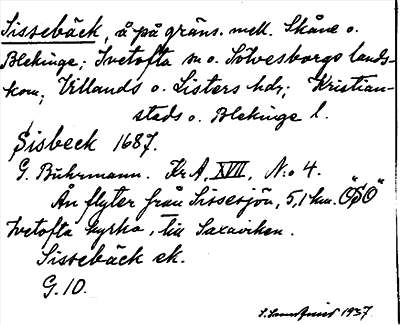 Sissebäck, å på gräns. mell. Skåne o.
Blekinge; Ivetofta sn o. Sölvesborgs lands-
kom; Villands o. Listers hdr; Kristian-
stads o. Blekinge l.
Sisbeck 1687.
G. Buhrmann. Kr A, XVII, N:o 4.
Ån flyter från Sissesjön, 5,1 km. "ÖSÖ"
Ivetofta kyrka, till Saxaviken.
Sissebäck ek.
G. 10.
1937